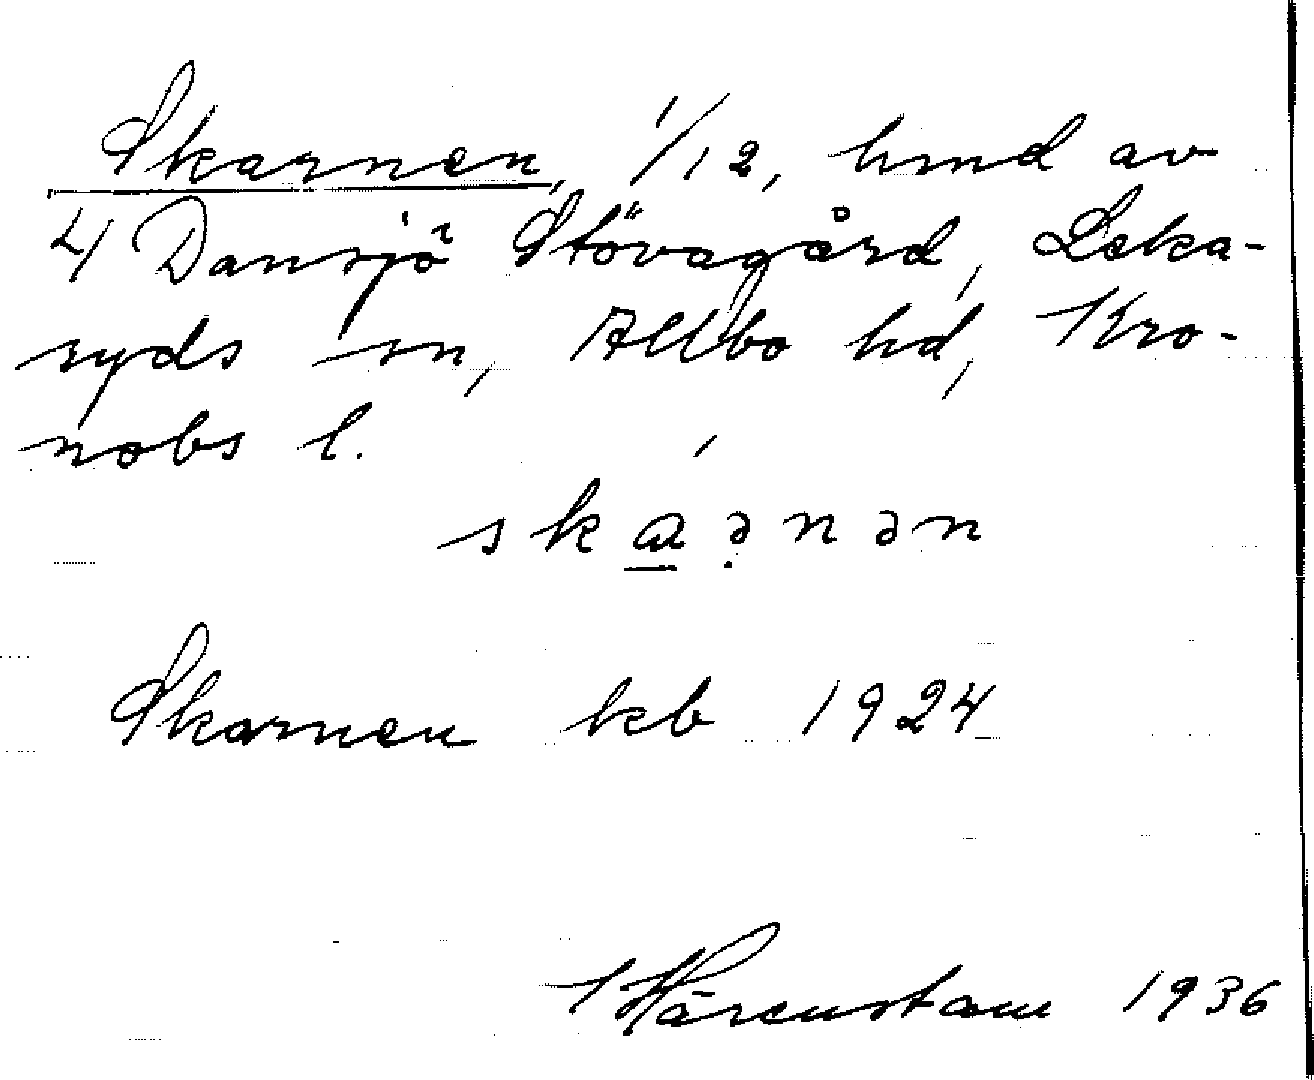 Skarnen, 1/12, hmd av
4 Dansjö Stövagård, Leka-
ryds sn, Allbo hd, Kro-
nobs l.
skaənən
Skarnen kb 1924
Härenstam 1936